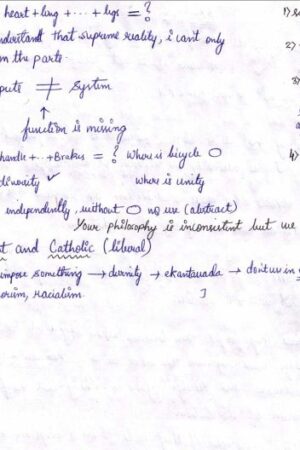 heart + lung + ... + legs = ?
understand that supreme reality, i can't only
m the parts.
pute ≠ System
↑
function is missing
handle + .. + Brakes = ? Where is bicycle O
dinosity ✓ where is unity
independently, without O no use (abstract)
Your philosophy is inconsistent but we
t and Catholic (liberal)
impose something → divinity → ekantavada → don't use in
orism, racialism. ]
1)
2)
3)
4)